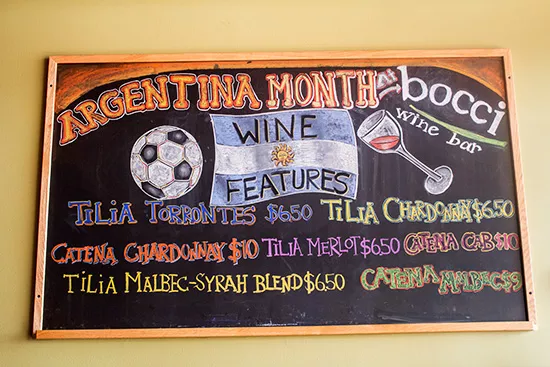 ARGENTINA MONTH at bocci
wine bar
WINE
FEATURES
TILIA TORRONTES $6.50 TILIA CHARDONNAY $6.50
CATENA CHARDONNAY $10 TILIA MERLOT $6.50 CATENA CAB $10
TILIA MALBEC-SYRAH BLEND $6.50 CATENA MALBEC $9